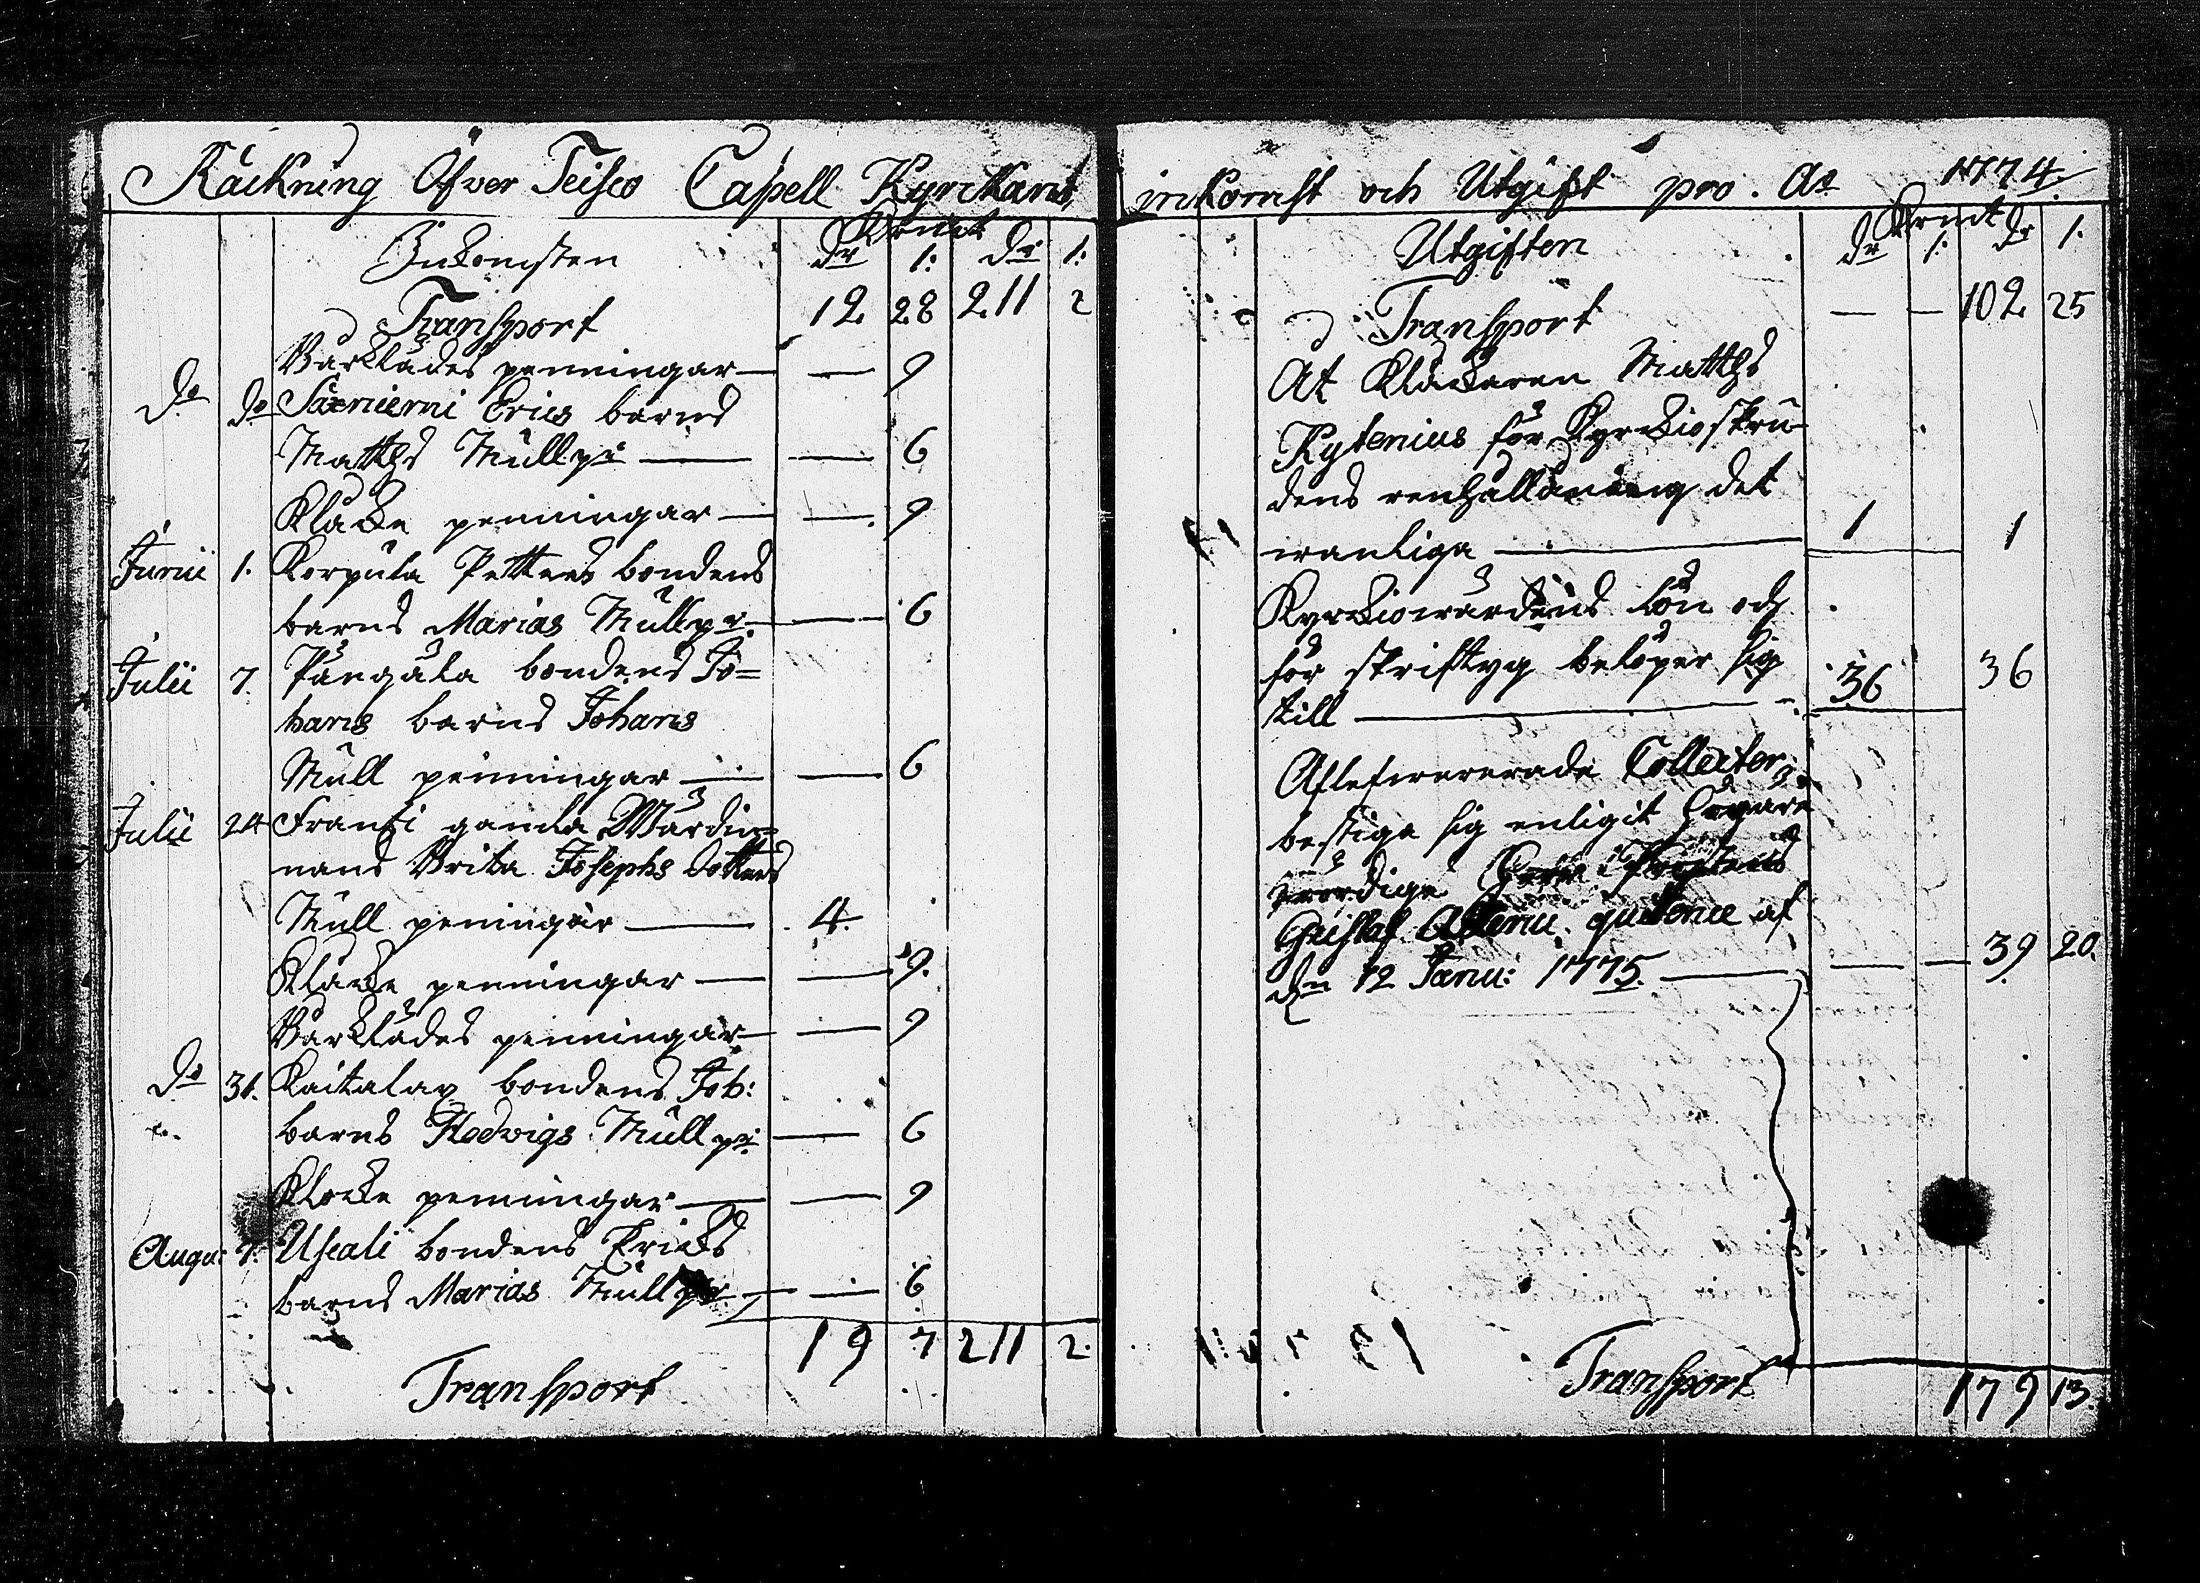 Räckning Öfver Teisco Capell Kyrckans
Krmt
Inkomsten dr 1: dr 1:
Transport 12. 28 211 2
Barklädes penningar — — 9
do do Erics barns
Matths Mull pr — — 6
Klåcke penningar — — 9
Junii 1. Korpula Petters bondens
barns Marias Mull pr. — 6
Julii 7. Pångala bondens Jo=
hans barns Johans
Mull penningar — — 6
Julii 24 Franssi gamla Wärdin=
nans Brita Josephs dotters
Mull peningar — 4.
Klåcke penningar — — 9.
Barklädes penningar — — 9
do 31. Kaitalax bondens Joh:
barns Hedvigs Mull pr — 6
Klocke penningar — — 9
Augu: 7. Uskali bondens Ericks
barns Marias Mull pr — — 6
19 7 211 2.
Transport
inkomst och Utgift pro. Ao 1774.
Krmt
Utgiften dr 1: dr 1.
Transport — — 102 25
At Klåckaren Matths
Kytenius för Kyrkioskru-
dens renhållanning det
wanliga — 1 1
Kyrkiowärdens lön och
för skriftyg belöper sig
till — 36 36
Aflefwererade Collecter,
bestiga sig enligit
wördige
Gustaf quitence af
dn 12 Janu: 1775. — — — 39 20.
Transport 179 13.